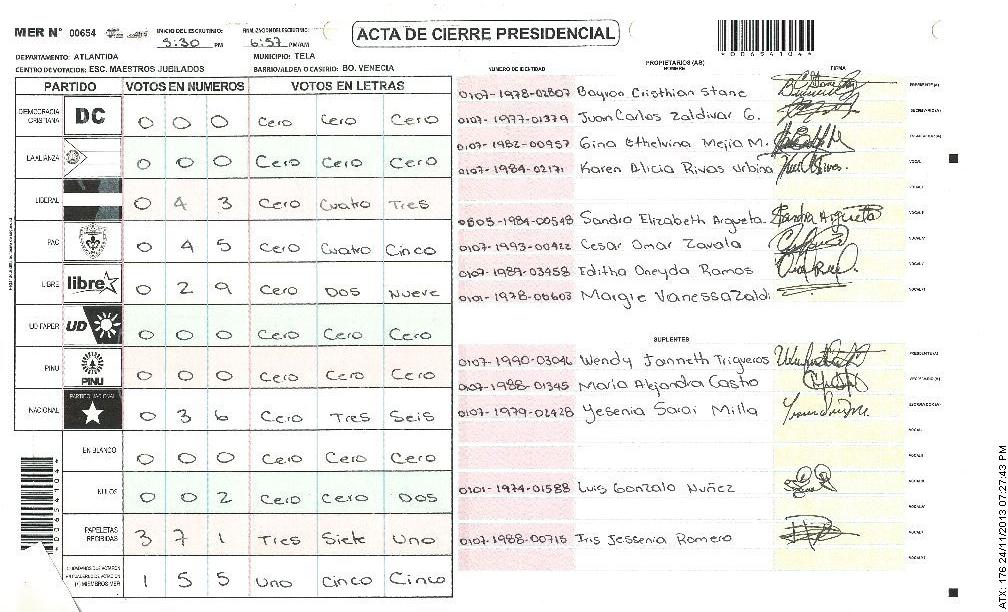 MER N° 00654 INICIO DEL ESCRUTINIO: 5:30 PM FINALIZACION DEL ESCRUTINIO: 6:57 PM/AM ACTA DE CIERRE PRESIDENCIAL
DEPARTAMENTO: ATLANTIDA MUNICIPIO: TELA
CENTRO DE VOTACION: ESC. MAESTROS JUBILADOS BARRIO/ALDEA O CASERIO: BO. VENECIA
PARTIDO VOTOS EN NUMEROS VOTOS EN LETRAS
DEMOCRACIA CRISTIANA DC 0 0 0 Cero Cero Cero
LA ALIANZA 0 0 0 Cero Cero Cero
LIBERAL 0 4 3 Cero Cuatro Tres
PAC 0 4 5 Cero Cuatro Cinco
LIBRE libre 0 2 9 Cero Dos Nueve
UD FAPER UD 0 0 0 Cero Cero Cero
PINU PINU 0 0 0 Cero Cero Cero
NACIONAL PARTIDO NACIONAL 0 3 6 Cero Tres Seis
EN BLANCO 0 0 0 Cero Cero Cero
NULOS 0 0 2 Cero Cero Dos
PAPELETAS RECIBIDAS 3 7 1 Tres Siete Uno
1 5 5 Uno Cinco Cinco
PROPIETARIOS (AS)
NUMERO DE IDENTIDAD NOMBRE FIRMA
0107-1978-02807 Bayron Cristhian Stanc PRESIDENTE (A)
0107-1977-01379 Juan Carlos Zaldivar G. SECRETARIO (A)
0107-1982-00957 Gina Ethelvina Mejia M. ESCRUTADOR (A)
0107-1984-02171 Karen Alicia Rivas Urbina VOCAL I
0805-1984-00548 Sandra Elizabeth Argueta. Sandra Argueta
0107-1993-00422 Cesar Omar Zavala
0107-1989-03958 Editha Oneyda Ramos
0101-1978-00603 Margie Vanessa Zaldi
SUPLENTES
0107-1990-03046 Wendy Janneth Trigueros PRESIDENTE (A)
0107-1988-01345 Maria Alejandra Castro SECRETARIO (A)
0107-1979-02428 Yesenia Sarai Milla ESCRUTADOR (A)
0101-1974-01588 Luis Gonzalo Nuñez
0107-1988-00715 Iris Jessenia Romero
ATX: 176 24/11/2013 07:27:43 PM